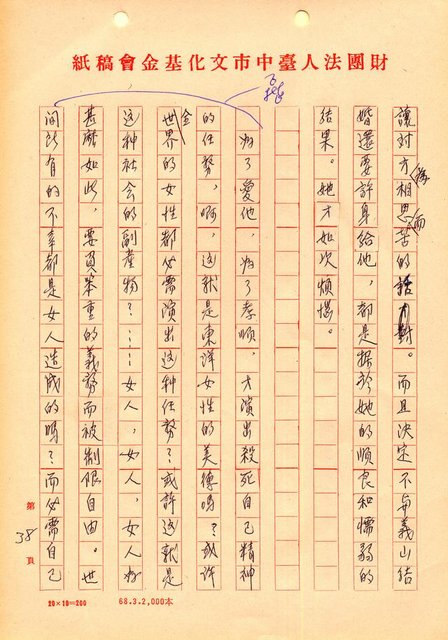 財團法人臺中市文化基金會稿紙
讓對方為相思而苦的才對。而且決定不與義山結
婚還要許身給他，都是探於她的順良和懦弱的
結果。她才如次煩惱。
為了愛他，為了孝順，才演出殺死自己精神
的任務，啊，這就是東洋女性的美德嗎？或許
全世界的女性都必需演出這种任務？或許這就是
這种社会的副產物？……女人，女人，女人為
甚麼如此，要負笨重的義務而被制限自由。世
間所有的不幸都是女人造成的嗎？而必需自己
第38頁
20×10=200 68.3.2,000本